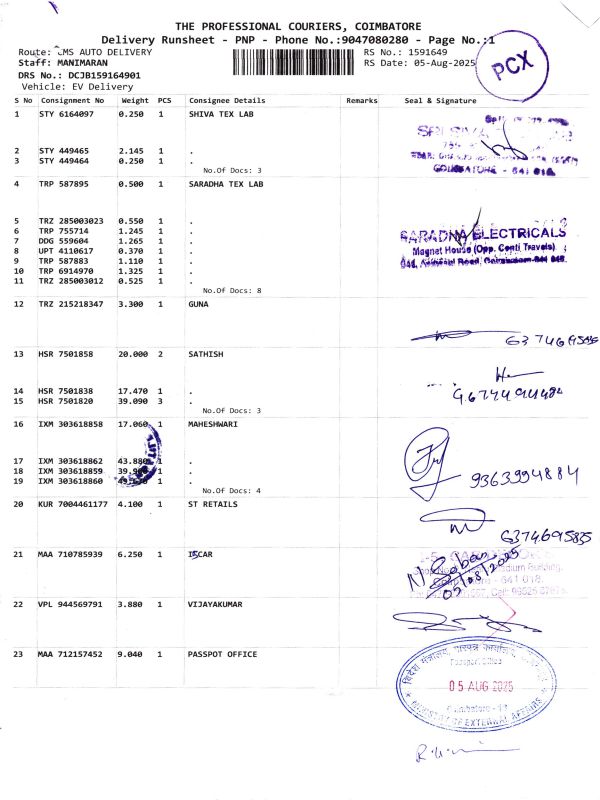 THE PROFESSIONAL COURIERS, COIMBATORE
Delivery Runsheet - PNP - Phone No.:9047080280 - Page No.:1
Route: CMS AUTO DELIVERY
RS No.: 1591649
Staff: MANIMARAN
RS Date: 05-Aug-2025
DRS No.: DCJB159164901
Vehicle: EV Delivery
PCX
S No Consignment No Weight PCS Consignee Details Remarks Seal & Signature
1 STY 6164097 0.250 1 SHIVA TEX LAB
2 STY 449465 2.145 1 .
3 STY 449464 0.250 1 .
No.Of Docs: 3
COIMBATORE - 641 018.
4 TRP 587895 0.500 1 SARADHA TEX LAB
5 TRZ 285003023 0.550 1 .
6 TRP 755714 1.245 1 .
7 DDG 559604 1.265 1 .
8 UPT 4110617 0.370 1 .
9 TRP 587883 1.110 1 .
10 TRP 6914970 1.325 1 .
11 TRZ 285003012 0.525 1 .
No.Of Docs: 8
SARADHA ELECTRICALS
Magnet House (Opp. Conti Travels)
12 TRZ 215218347 3.300 1 GUNA
13 HSR 7501858 20.000 2 SATHISH
14 HSR 7501838 17.470 1 .
15 HSR 7501820 39.090 3 .
No.Of Docs: 3
16 IXM 303618858 17.060 1 MAHESHWARI
17 IXM 303618862 43.880 1 .
18 IXM 303618859 1 .
19 IXM 303618860 1 .
No.Of Docs: 4
9363994884
20 KUR 7004461177 4.100 1 ST RETAILS
6374695835
21 MAA 710785939 6.250 1 ISCAR
05/08/2025
22 VPL 944569791 3.880 1 VIJAYAKUMAR
23 MAA 712157452 9.040 1 PASSPOT OFFICE
विदेश मंत्रालय,
Passport Office
05 AUG 2025
Coimbatore - 18
MINISTRY OF EXTERNAL AFFAIRS